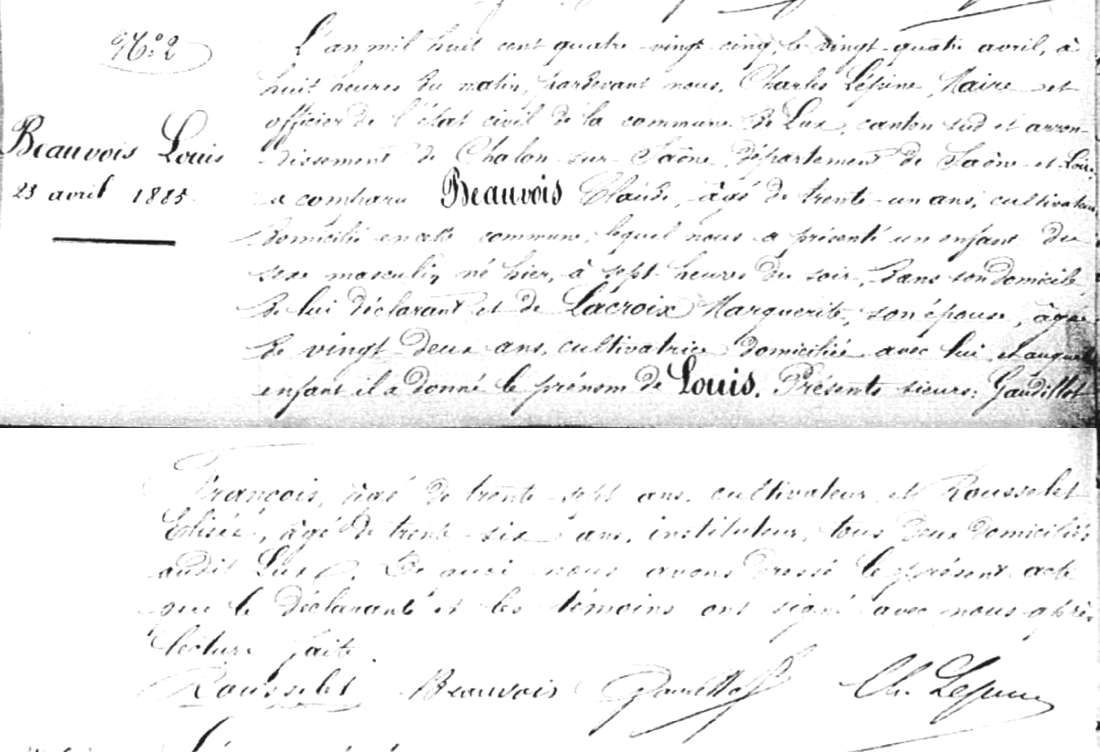 N.º 2
Beauvois Louis
23 avril 1885
L'an mil huit cent quatre-vingt cinq, le vingt-quatre avril, à
huit heures du matin, pardevant nous, Charles Lépine, Maire et
officier de l'état civil de la commune de Lux, canton sud et arron-
dissement de Chalon-sur-Saône, département de Saône-et-Loire,
a comparu Beauvois Claude, âgé de trente-un ans, cultivateur,
domicilié en cette commune, lequel nous a présenté un enfant du
sexe masculin, né hier, à sept heures du soir, dans son domicile
de lui déclarant et de Lacroix Marguerite, son épouse, âgée
de vingt-deux ans, cultivatrice domiciliée avec lui et auquel
enfant il a donné le prénom de Louis. Présents sieurs: Gaudillot
François, âgé de trente-sept ans, cultivateur et Rousselet
Elisée, âgé de trente-six ans, instituteur, tous deux domiciliés
audit Lux. De quoi nous avons dressé le présent acte
que le déclarant et les témoins ont signé avec nous après
lecture faite
Rousselet Beauvois Gaudillot Ch. Lépine